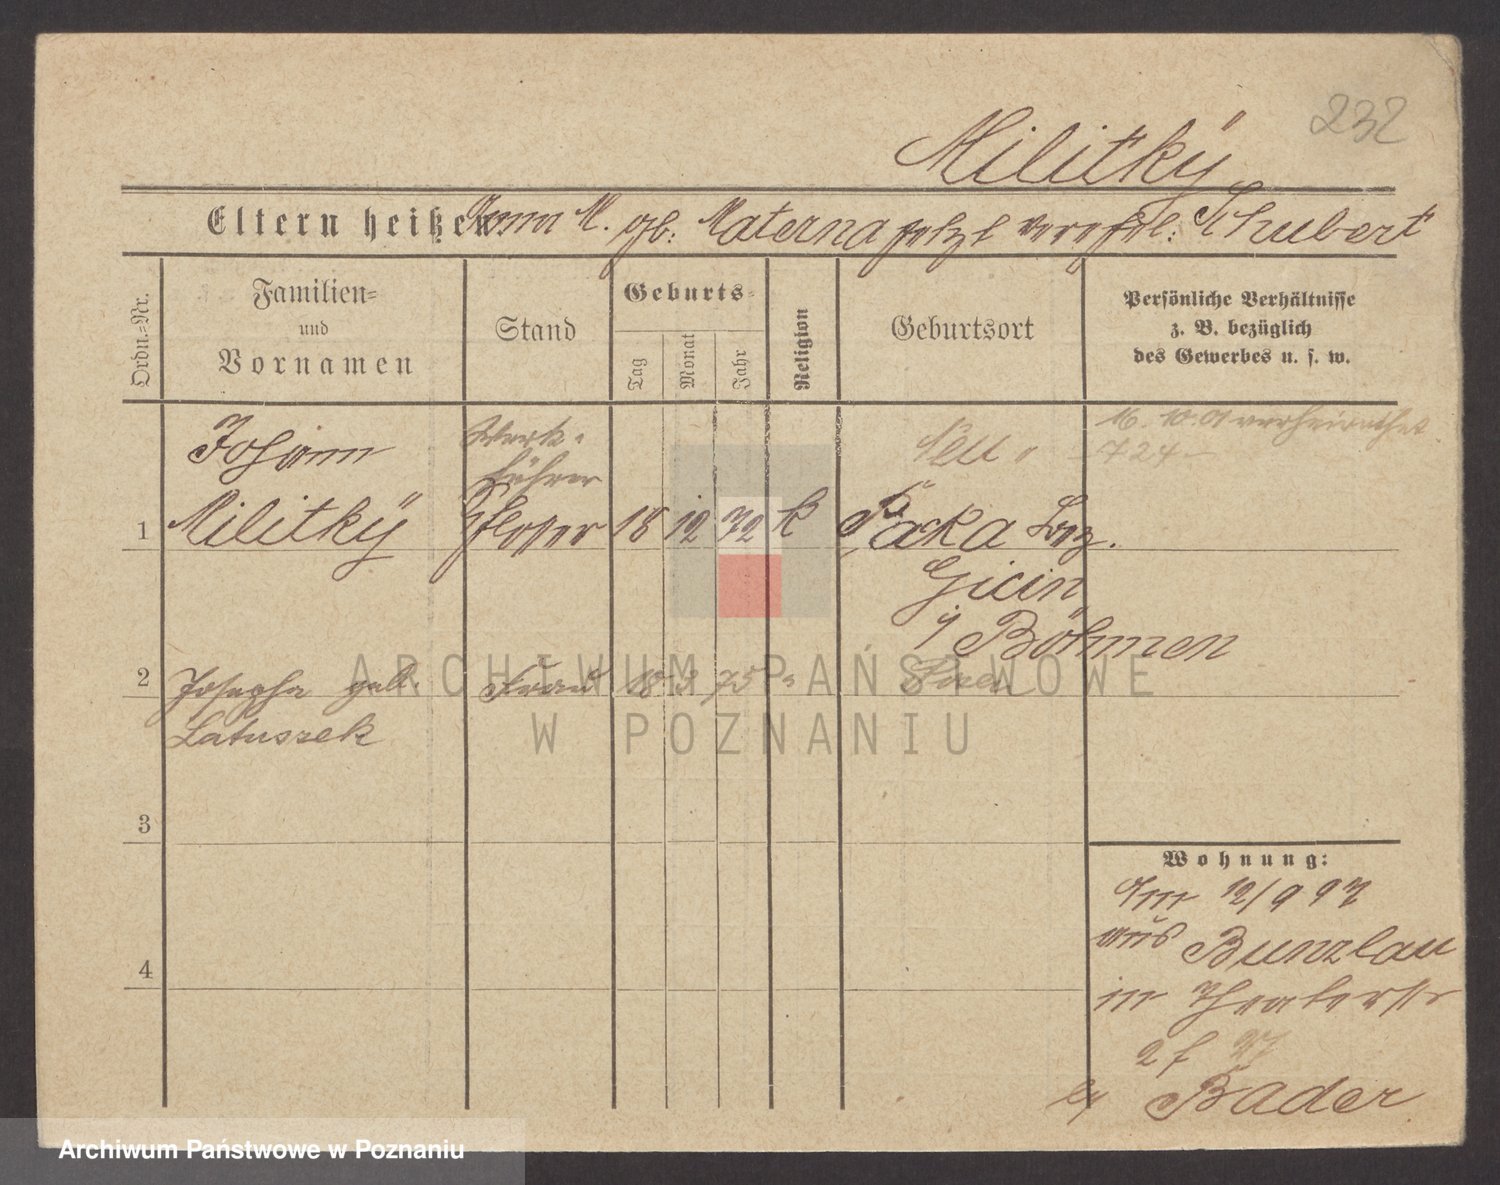 232
Militký
Eltern heißen: Anna M. geb: Materna jetzt vereh.: Schubert
Ordn.=Nr.
Familien=
und
Vornamen
Stand
Geburts=
Tag
Monat
Jahr
Religion
Geburtsort
Persönliche Verhältnisse
z. B. bezüglich
des Gewerbes u. s. w.
16. 10. 01 verheirathet
724
Johann
Werk=
führer
Neu
1
Militký
Schlosser
18
12
72
k
Paka Bez.
Gicin
i/ Böhmen
2
Josepha geb.
Latuszek
Frau
18
3
75
"
Posen
3
4
Wohnung:
Am 12/9 97
aus Bunzlau
in Theaterstr
2 f
by Bader
ARCHIWUM PAŃSTWOWE
W POZNANIU
Archiwum Państwowe w Poznaniu